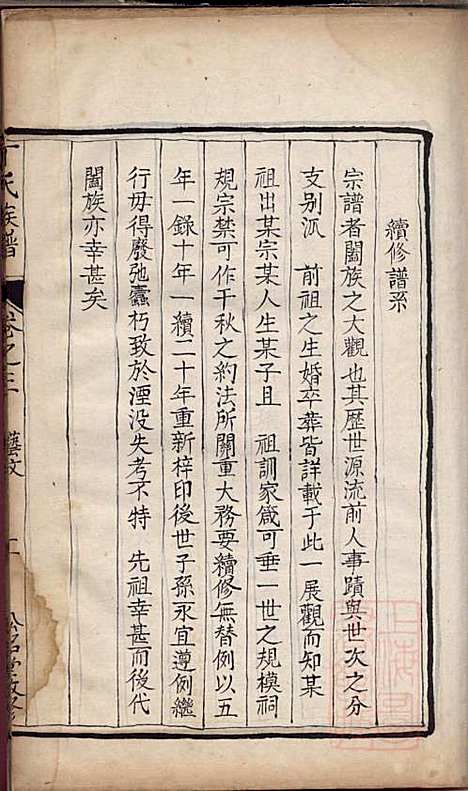 續修譜系
宗譜者闔族之大觀也其歷世源流前人事蹟與世次之分
支别派 前祖之生婚卒葬皆詳載于此一展觀而知某
祖出某宗某人生某子且 祖訓家箴可垂一世之規模祠
規宗禁可作千秋之約法所關重大務要續修無替例以五
年一錄十年一續二十年重新梓印後世子孫永宜遵例繼
行毋得廢弛蠹朽致於湮没失考不特 先祖幸甚而後代
闔族亦幸甚矣
氏族譜 卷之三 藝文